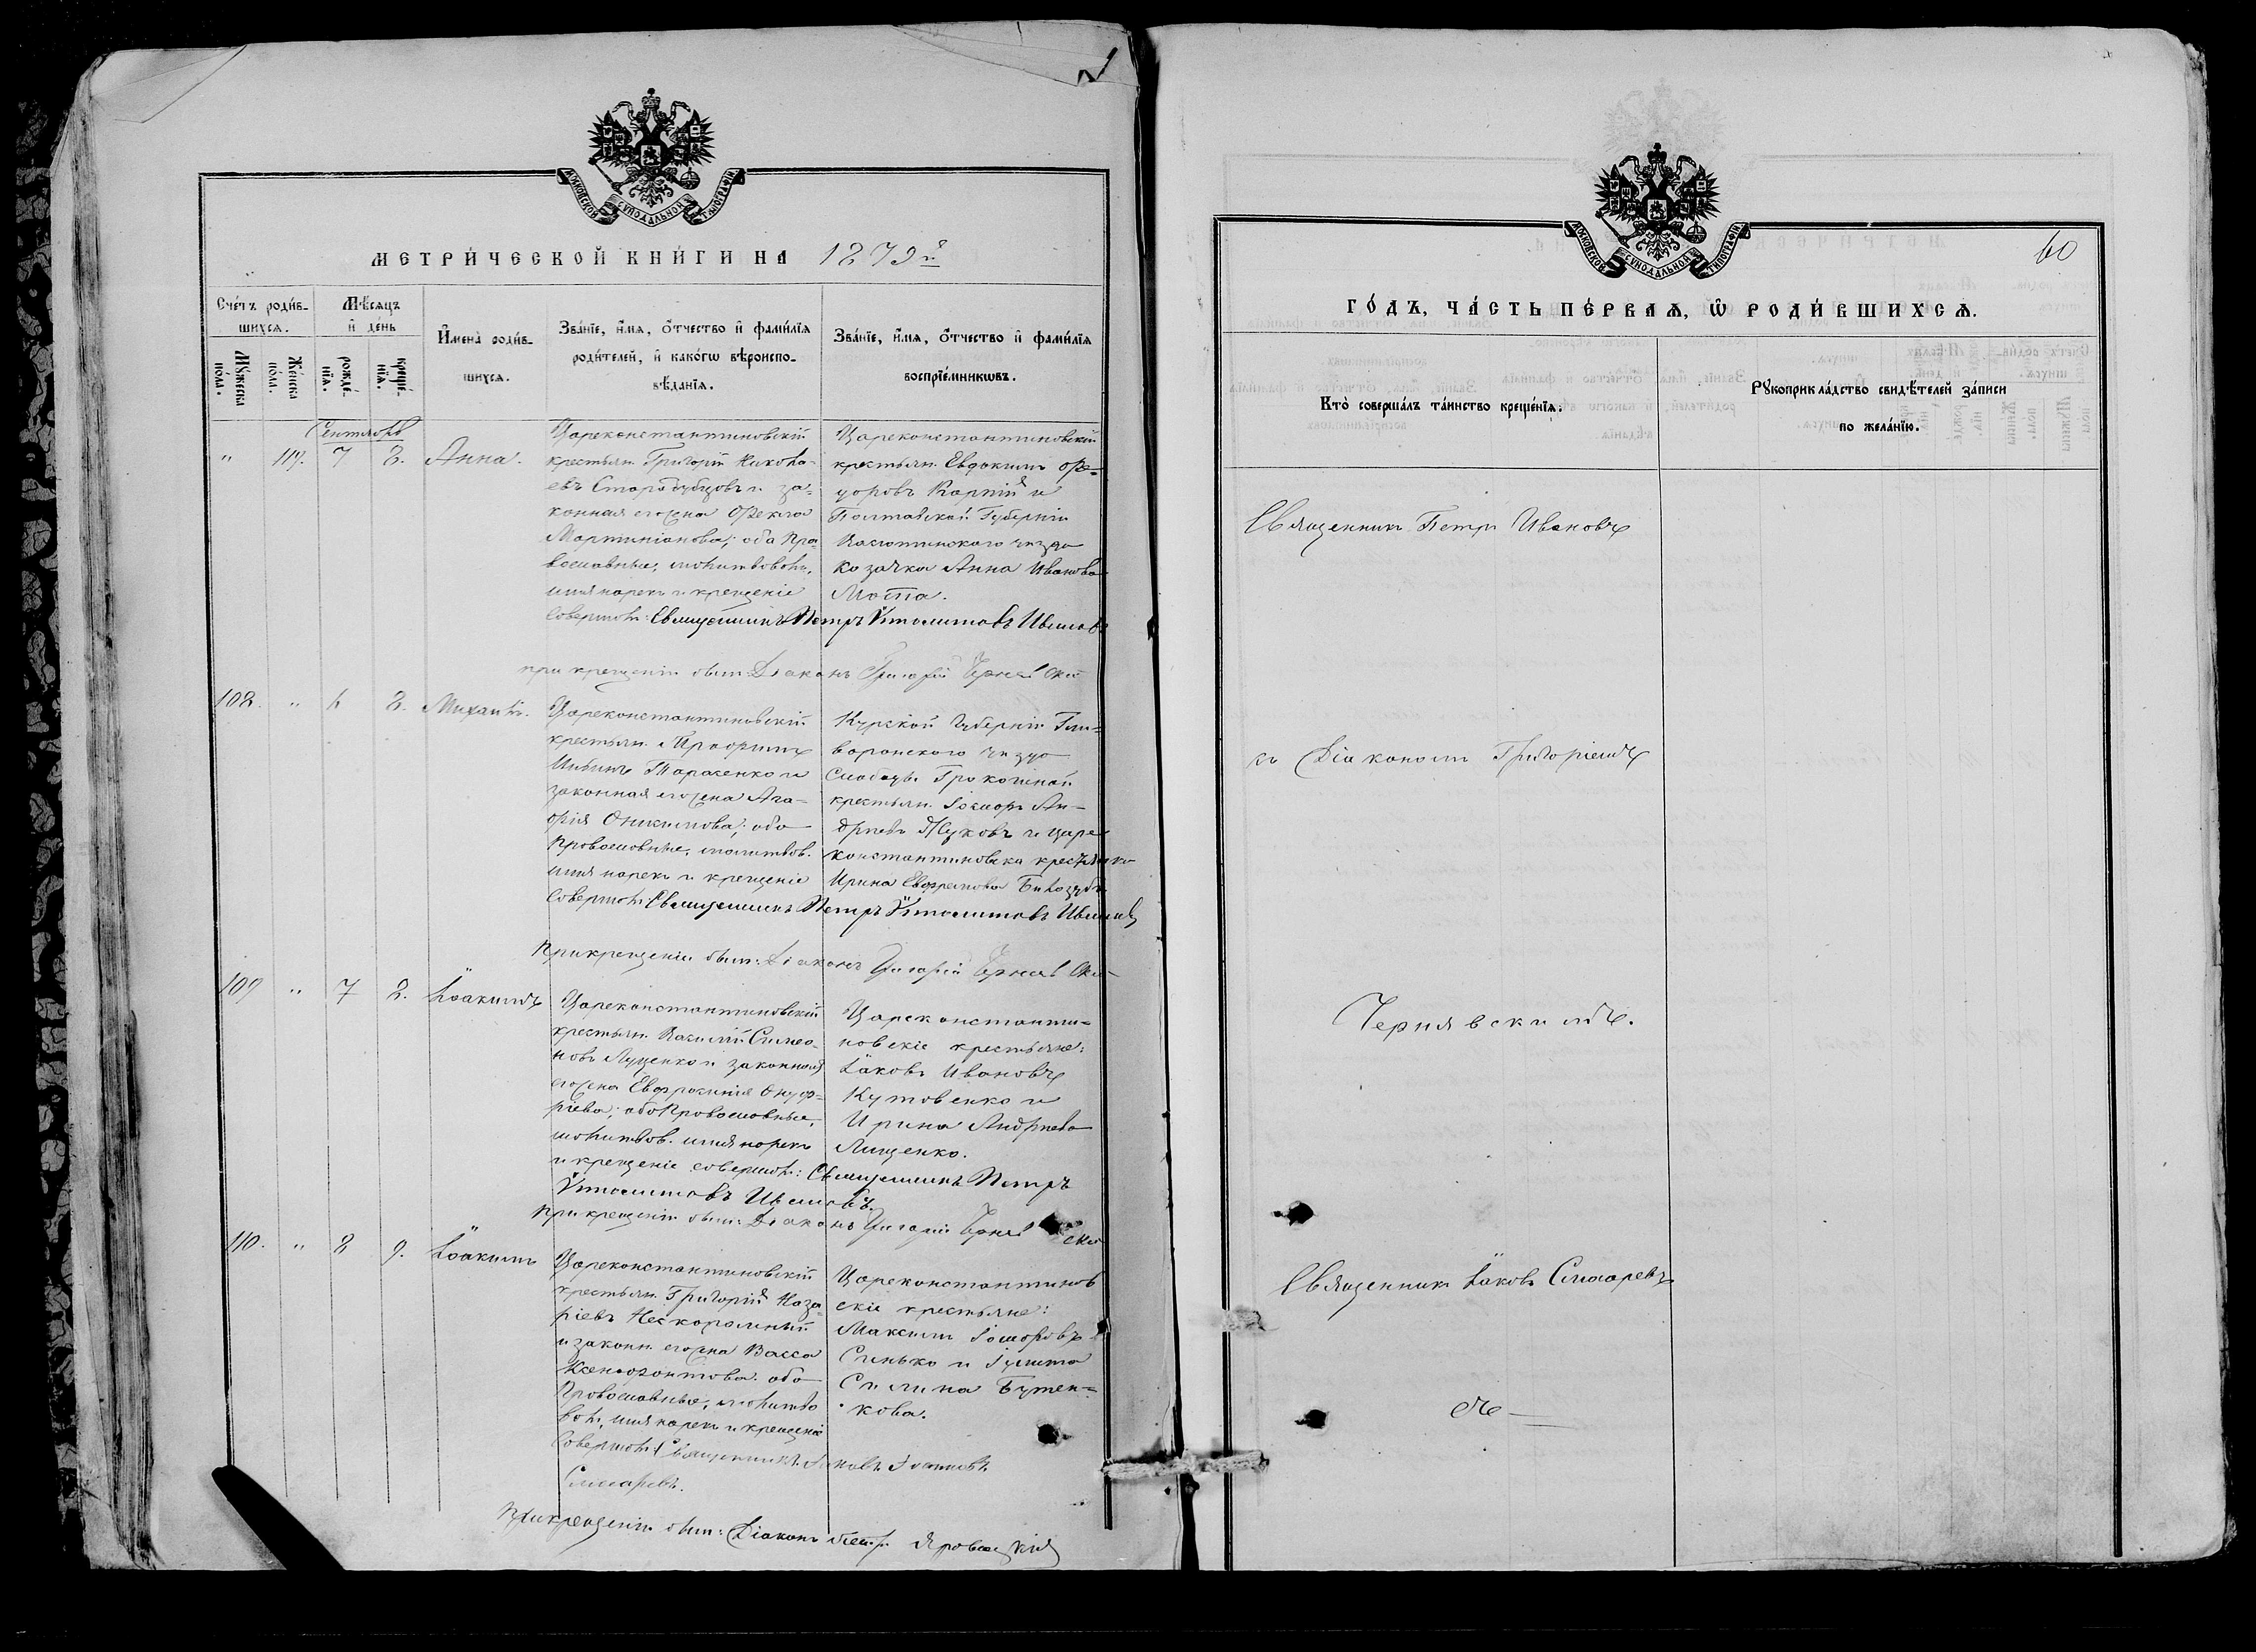 МОСКОВСКОЙ СѴНОДАЛЬНОЙ ТИПОГРАФІИ
МЕТРИ́ЧЕСКОЙ КНИ́ГИ НА 1879й
Сче́тъ роди́в-
шихсѧ.
Мѣ́сѧцъ
и҆ де́нь
Мꙋ́жеска
по́ла.
Же́нска
по́ла.
рожде́-
нїѧ.
креще́-
нїѧ.
И҆мена̀ роди́в-
шихсѧ.
Зва́нїе, и҆́мѧ, ѻ҆́тчество и҆ фами́лїѧ
роди́телей, и҆ како́гѡ вѣроиспо-
вѣ́данїѧ.
Зва́нїе, и҆́мѧ, ѻ҆́тчество и҆ фами́лїѧ
воспрїе́мникѡвъ.
Сентябрь
" 119. 7 8. Анна.
Цареконстантиновскій
крестьян. Григорій Никола-
евъ Стародубцовъ и за-
конная его жена Ѳекла
Мартиніанова; оба Пра-
вославные, молитвовалъ,
имя нарекъ и крещеніе
совершалъ: Священникъ Петръ Ипполитовъ Ивановъ
Цареконстантиновскій
крестьян. Евдокимъ Ѳе-
доровъ Карпій и
Полтавской Губерніи
уезда
козачка Анна Иванова
Мотта.
при крещеніи былъ: Діаконъ Григорій Чернявскій
108. " 6 8. Михаилъ.
Цареконстантиновскій
крестьян. Трофимъ
Ильинъ Тарасенко и
законная его жена Ага-
фія Оникимова; оба
Православные, молитвов.
имя нарекъ и крещеніе
совершалъ: Священникъ Петръ Ипполитовъ Ивановъ
Курской Губерніи Гай-
воронского уезда
Слободы
крестьян. Ісидоръ Ан-
дреевъ Жуковъ и царе
константиновска крестьянка
Ирина Евфремова Билозубъ
При крещеніи былъ: Діаконъ Григорій Чернявскій
109 " 7 8. Іоакимъ
Цареконстантиновскій
крестьян. Василій Симео-
новъ Луценко и законная
его жена Евфросинія Онуф-
ріева; оба Православные,
молитвов. имя нарекъ
и крещеніе совершалъ: Священникъ Петръ
Ипполитовъ Ивановъ.
Цареконстанти-
новскіе крестьяне:
Іаковъ Ивановъ
Кутовенко и
Ирина Андреева
Лищенко.
при крещеніи былъ: Діаконъ Григорій Чернявскій
110. " 8 9. Іоакимъ
Цареконстантиновскій
крестьян. Григорій Наза-
ріевъ Нескоромный
и законн. его жена Васса
Ксенофонтова. оба
Православные, молитво
валъ, имя нарекъ и крещеніе
совершалъ: Священникъ Іаковъ Іоанновъ
Слюсаревъ.
Цареконстантинов
скіе крестьяне:
Максимъ Ісидоровъ
Синько и Іулита
Силина Бутен-
кова.
При крещеніи былъ: Діаконъ Петръ
60
МОСКОВСКОЙ СѴНОДАЛЬНОЙ ТИПОГРАФІИ
ГО́ДЪ, ЧА́СТЬ ПЕ́РВАѦ, Ѽ РОДИ́ВШИХСѦ.
Кто̀ соверша́лъ та́инство креще́нїѧ.
Рꙋкоприкла́дство свидѣ́телей за́писи
по жела́нїю.
Священникъ Петръ Ивановъ
съ Діакономъ Григоріемъ
Чернявскимъ.
Священникъ Іаковъ Слюсаревъ